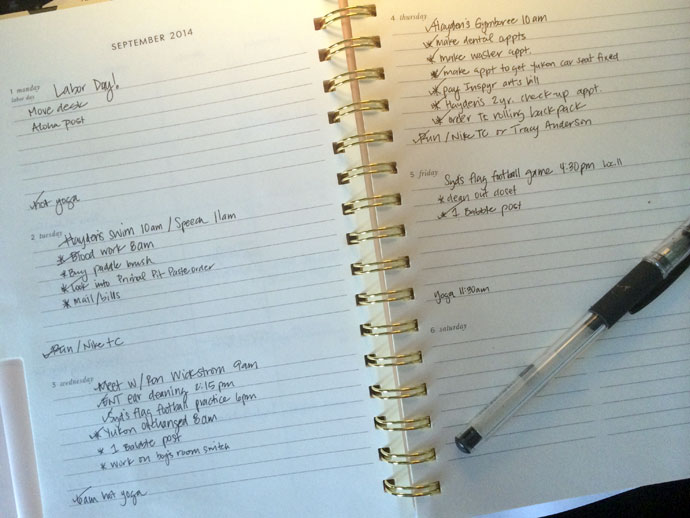 SEPTEMBER 2014
1 monday
labor day
Labor Day!
Move desk
Aloha post
hot yoga
2 tuesday
Hayden's swim 10am / Speech 11am
* Blood work 8am
* Buy paddle brush
* Look into Primal Pit Paste order
* Mail/bills
Run / Nike TC
3 wednesday
Meet w/ Ron Wickstrom 9am
ENT ear cleaning 2:15 pm
Syd's flag football practice 6pm
* Yukon oil changed 8am
* 1 Babble post
* work on boy's room switch
6am hot yoga
4 thursday
Hayden's Gymboree 10am
* make dental appts
* make washer appt.
* make appt to get yukon car seat fixed
* pay Inspyr arts bill
* Hayden's 2yr. check-up appt.
* order Ts rolling backpack
Run / Nike TC or Tracy Anderson
5 friday
Syd's flag football game 4:30pm
* clean out closet
* 1 Babble post
Yoga 11:30am
6 saturday